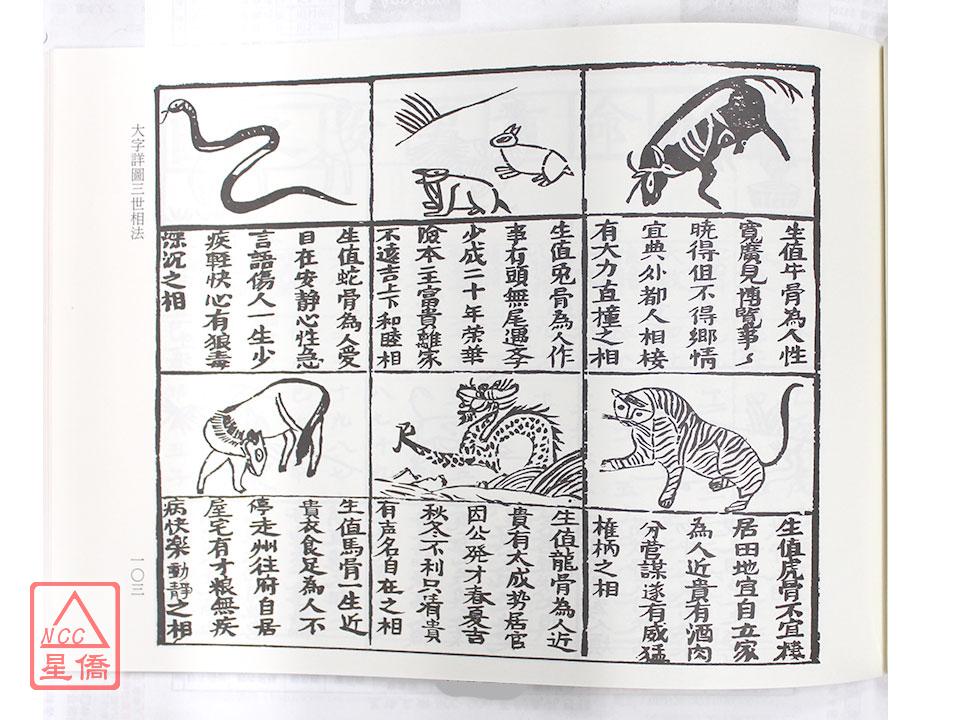 生值牛骨為人性
寬廣見博覽事〻
曉得但不得鄉情
宜典外都人相接
有大力直撞之相
生值兎骨為人作
事有頭無尾遇
少成二十年榮華
險本主富貴離家
不遠吉上下和睦相
生值蛇骨為人受
自在安静心性急
言語傷人一生少
疾軽快心有狼毒
深沉之相
生值虎骨不宜棲
居田地宜自立家
為人近貴有酒肉
分營謀遂有威猛
權柄之相
生值龍骨為人近
貴有太成势居官
因公発才春夏吉
秋冬不利只貴
有声名自在之相
生值馬骨一生近
貴衣食足為人不
停走州往府自居
屋宅有才粮無疾
病快樂動静之相
大字詳圖三世相法
一〇三
NCC
星僑